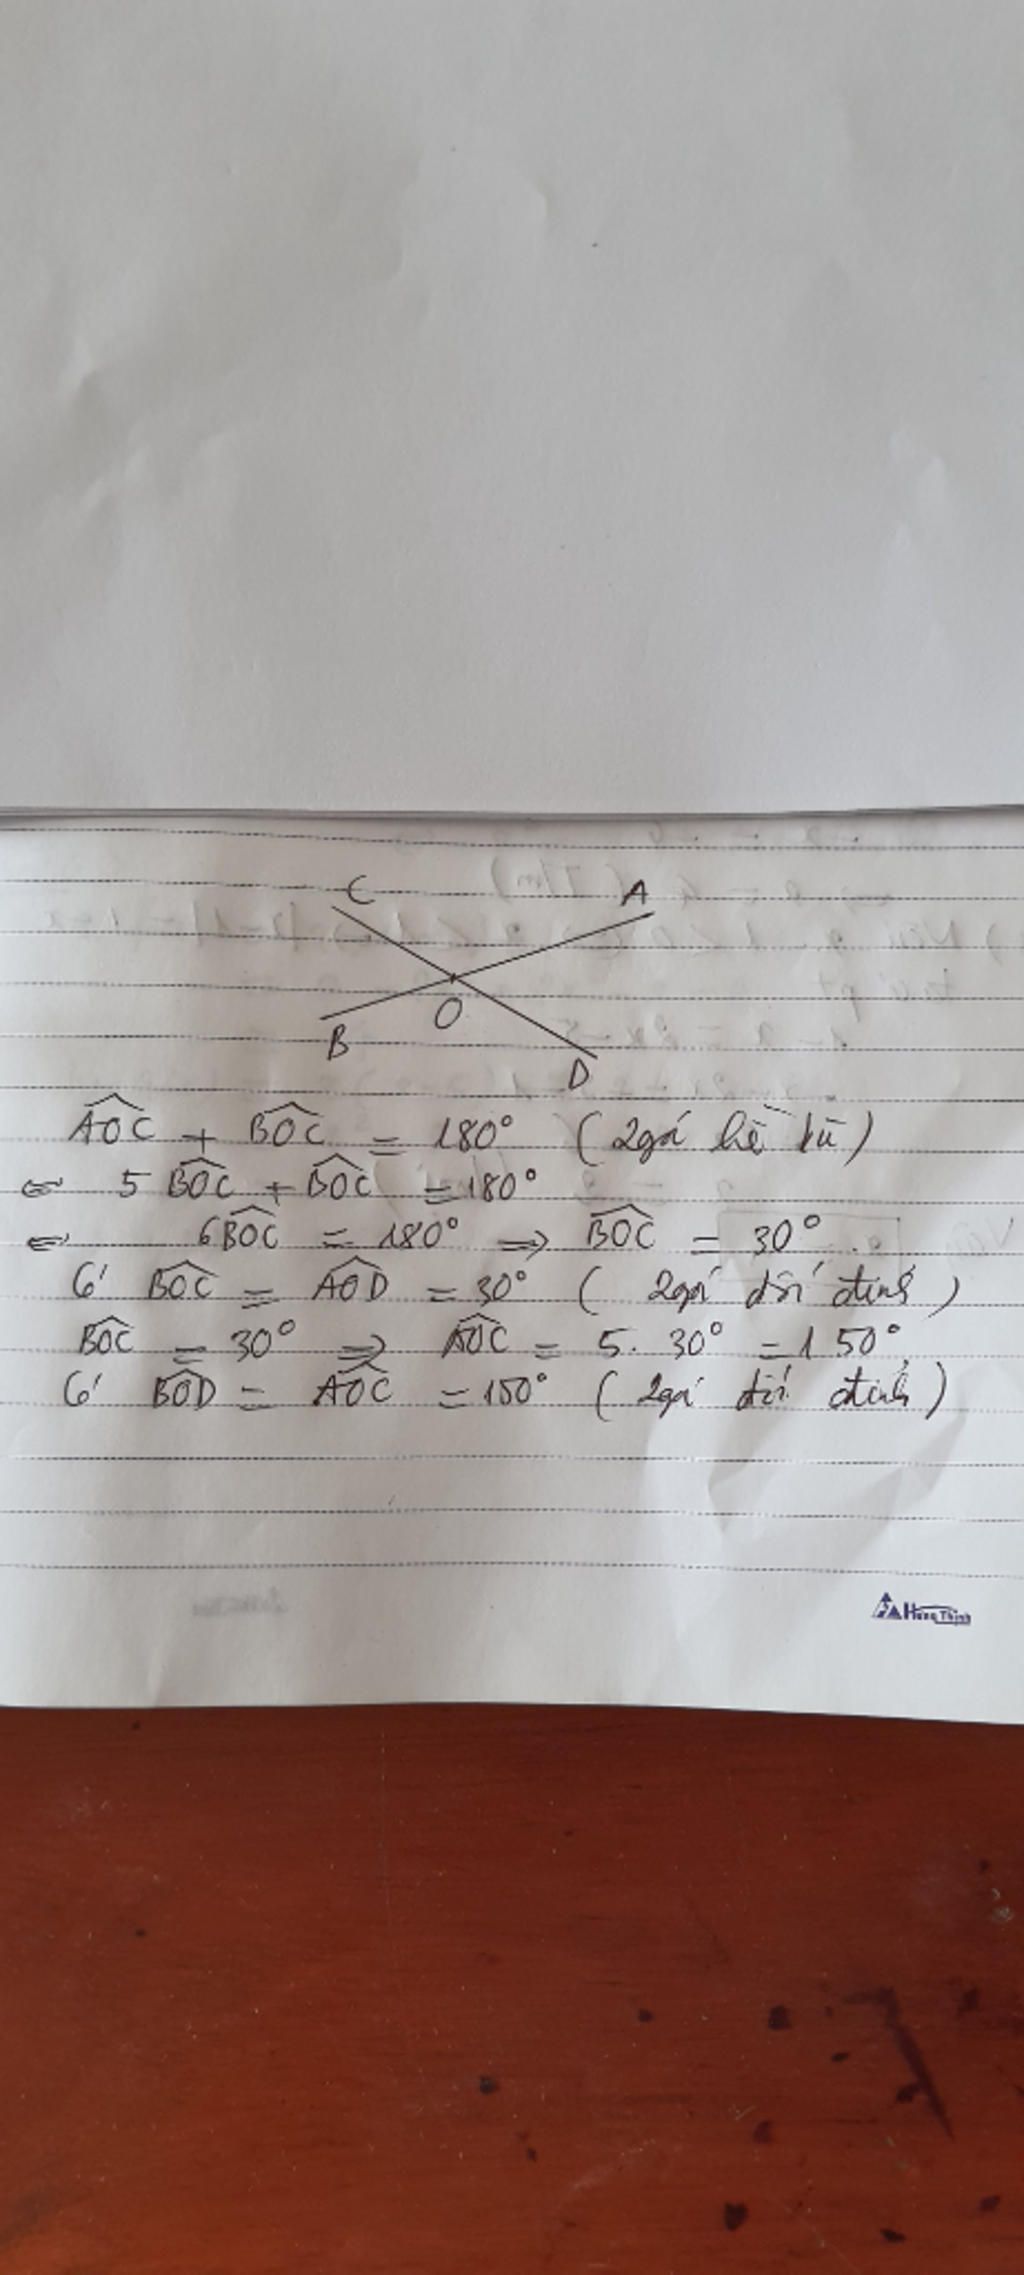 C A
O
B
D
AOC + BOC = 180° (2góc kề bù)
⇔ 5 BOC + BOC = 180°
⇔ 6BOC = 180° ⇒ BOC = 30°.
Có BOC = AOD = 30° (2góc đối đỉnh)
BOC = 30° ⇒ AOC = 5. 30° = 150°
Có BOD = AOC = 150° (2góc đối đỉnh)
Hưng Thịnh